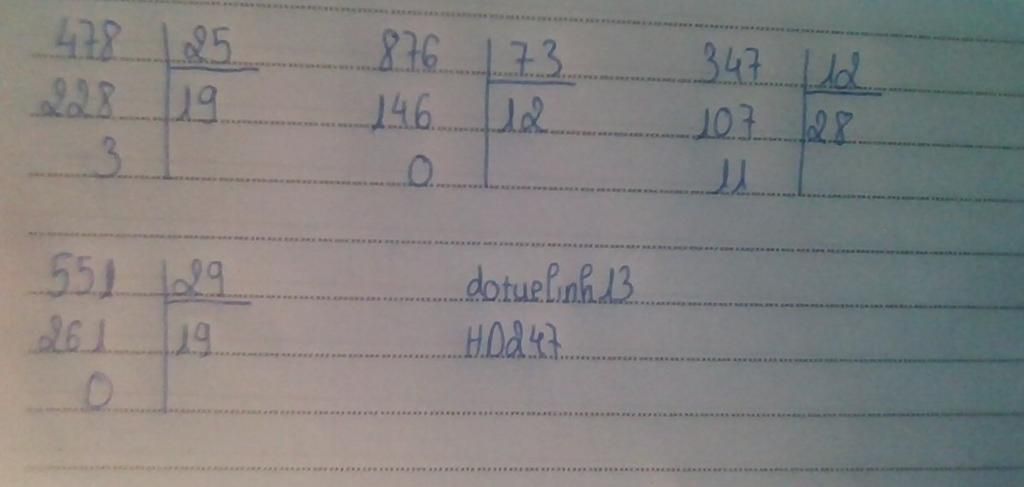 478 25 876 73 347 12
228 19 146 12 107 28
3 0 11
551 29 dotuelinh13
261 19 HD247
0